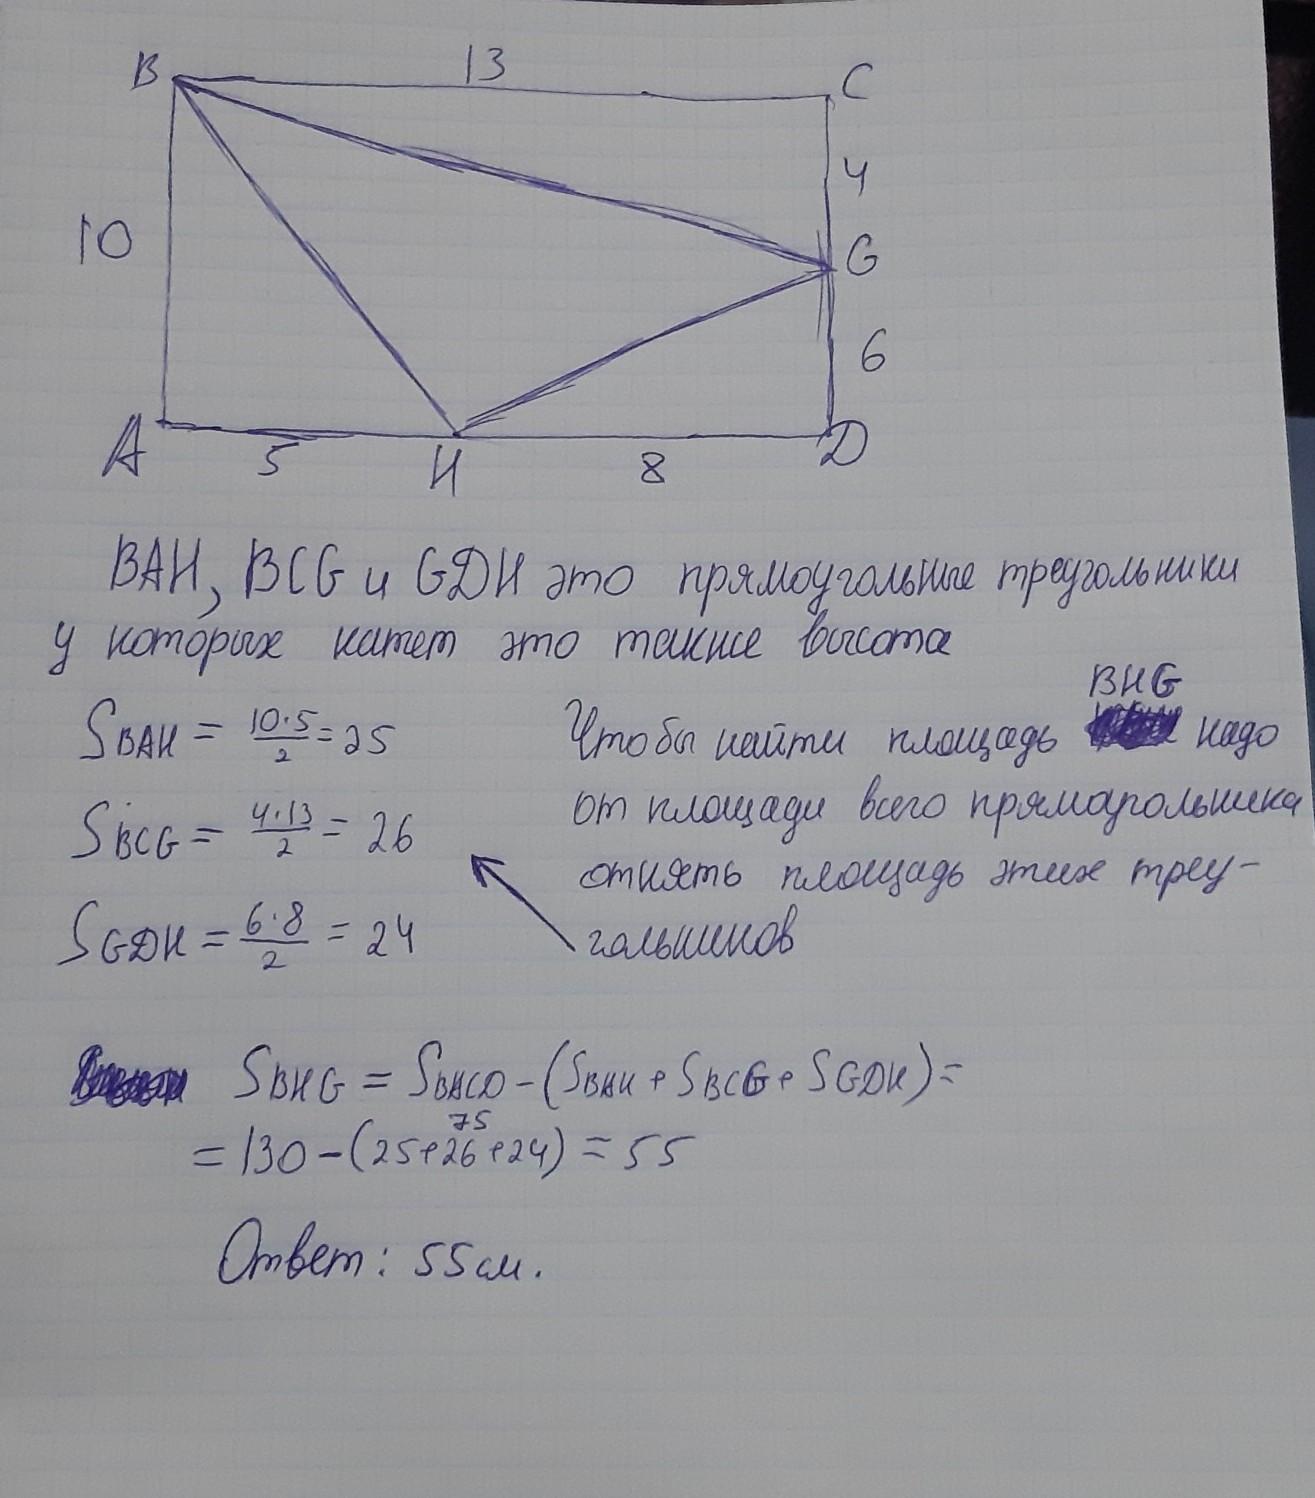 B 13 C
4
10 G
6
A 5 H 8 D
BAH, BCG и GDH это прямоугольные треугольники
у которых катет это также высота
S BAH = 10·5/2 = 25
S BCG = 4·13/2 = 26
S GDH = 6·8/2 = 24
BHG
Чтобы найти площадь надо
от площади всего прямоугольника
отнять площадь этих треу-
гольников
S BHG = S BACD - (S BAH + S BCG + S GDH) =
75
= 130 - (25+26+24) = 55
Ответ: 55см.